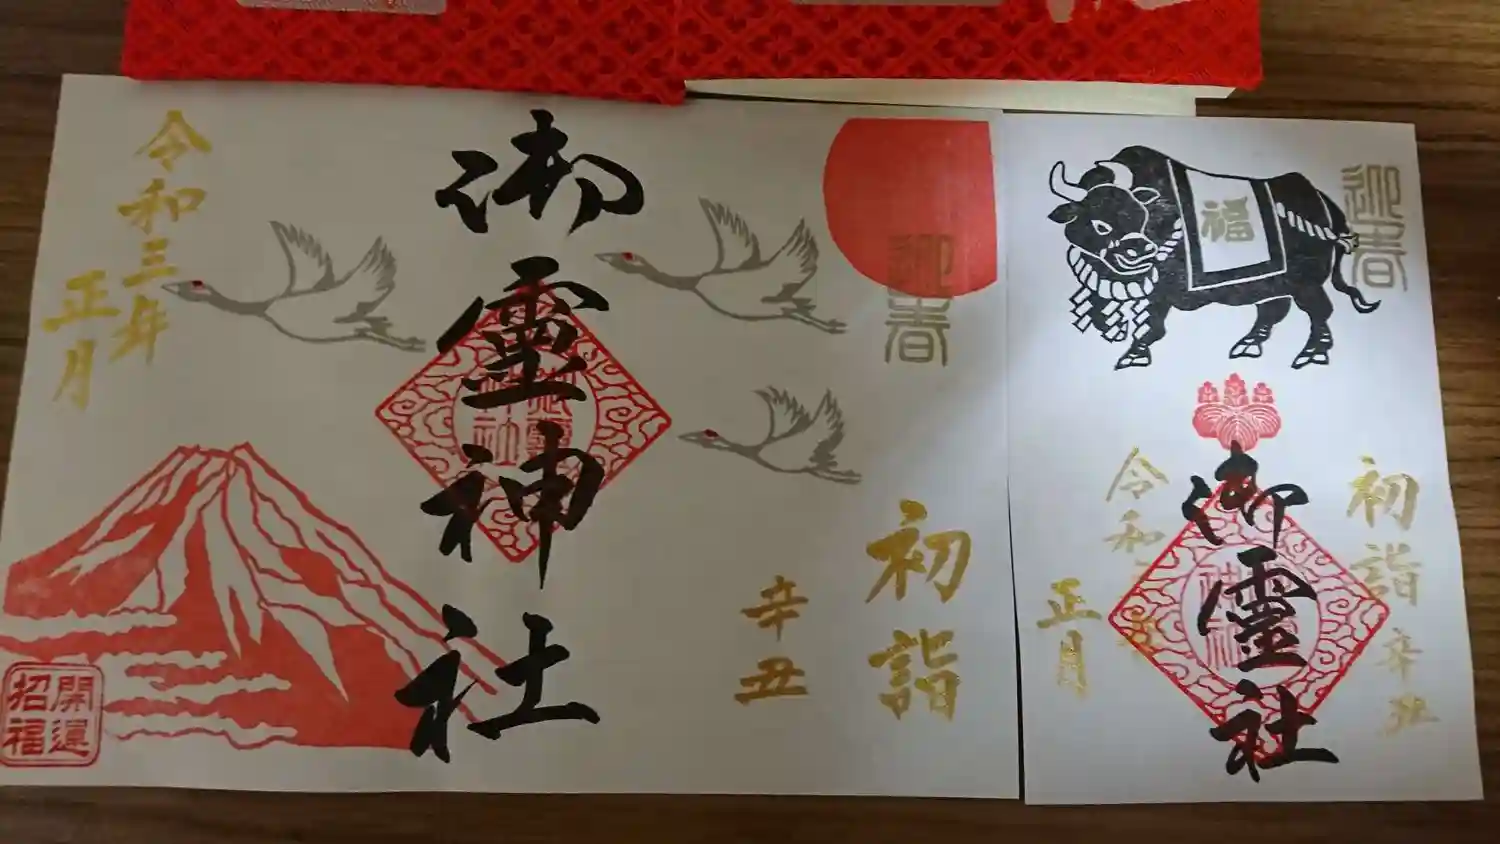 迎春
初詣
辛丑
御霊神社
令和三年
正月
開運
招福
迎春
福
初詣
辛丑
御霊社
令和
正月